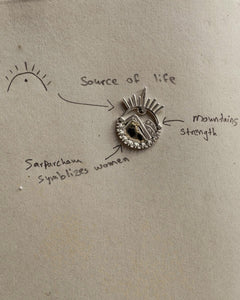 Source of life
mountains
strength
Sarparcham
: symblizes women